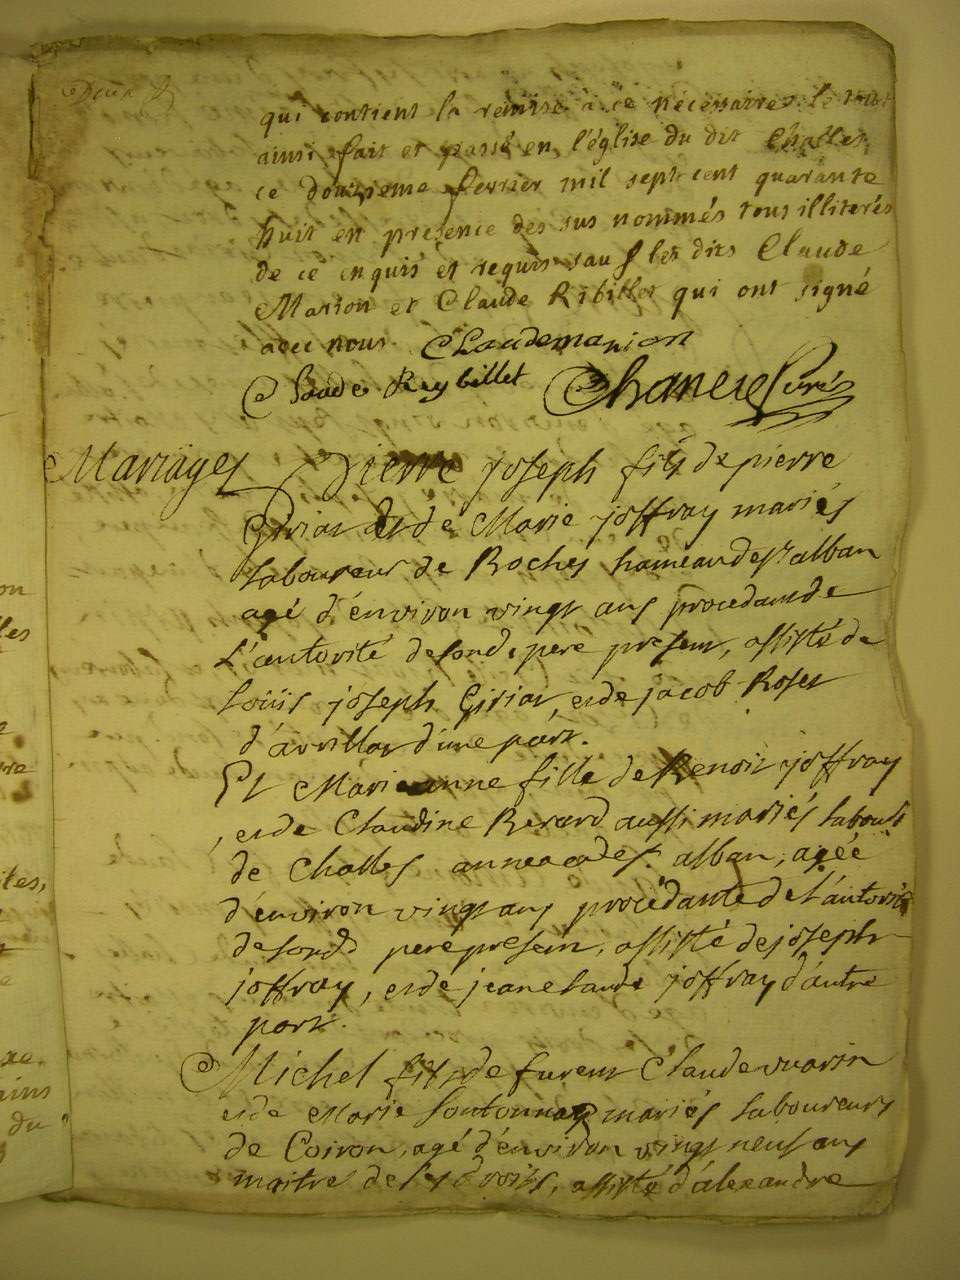 qui contient la remise à ce nécessaire le tout
ainsi fait et passé en l'église du dit Challes
ce douzieme fevrier mil sept cent quarante
huit en presence des sus nommés tous illiterés
de ce enquis et requis sauf les dits Claude
Marion et Claude Ribillet qui ont signé
avec nous. Claudemarion
Claude Reybillet Chanere Curé
Mariages Pierre joseph fils de pierre
Giriat et de Marie joffray mariés
laboureurs de Roches hameau de st alban
agé d'environ vingt ans procedant de
l'autorité de sond. pere present, assisté de
loüis joseph Giriat, et de jacob Roset
d'arvillar d'une part.
Et Marieanne fille de Benoit joffray
, et de Claudine Berard aussi mariés labours
de Challes annexe de st. alban, agée
d'environ vingt ans procédante de l'autorité
de sond. pere present, assisté de joseph
joffray, et de jeanclaude joffray d'autre
part.
Michel fils de fureut Claude vuarin
et de Marie Contonnaz mariés laboureurs
de Coiron, agé d'environ vingt neuf ans
maitre de ses droits, assisté d'alexandre